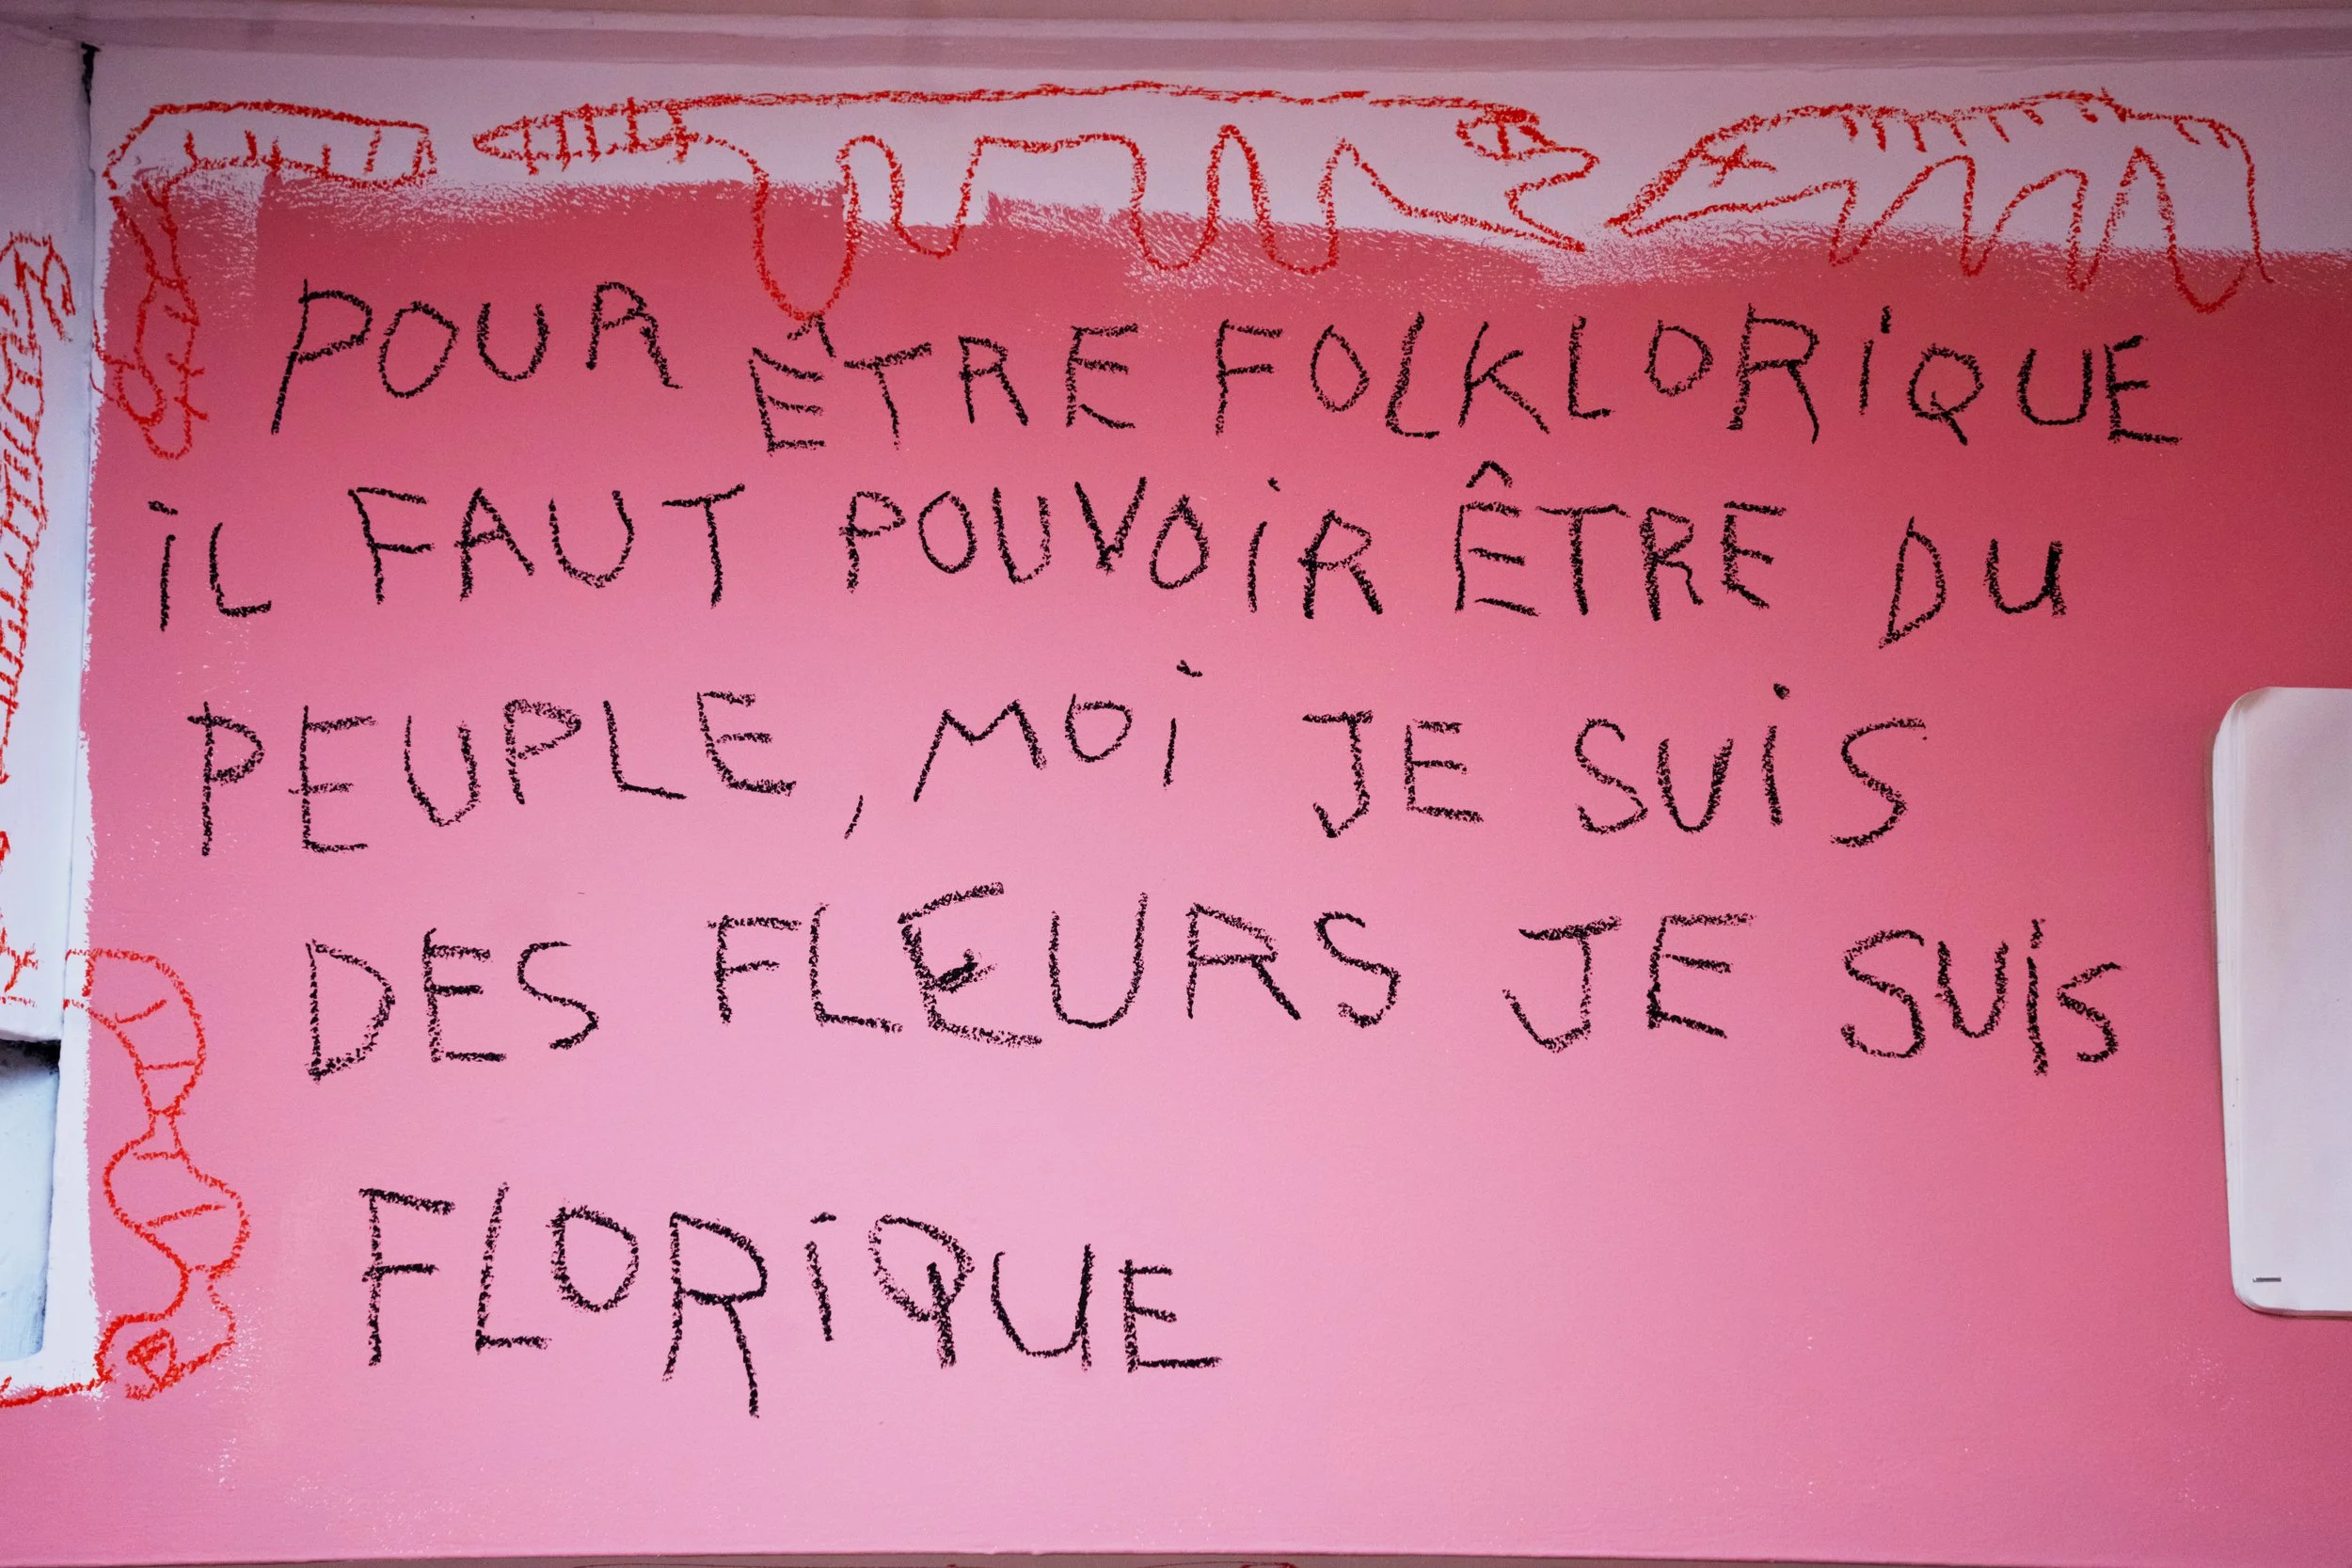 POUR ÊTRE FOLKLORiQUE
iL FAUT POUVOiR ÊTRE DU
PEUPLE, MOi JE SUiS
DES FLEURS JE SUiS
FLORiQUE